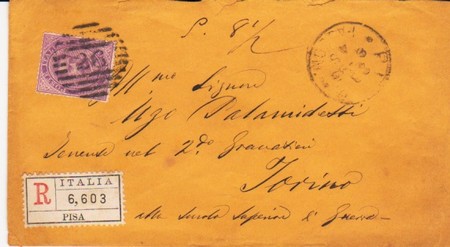 S. 8½
All'Ill mo Signore
Ugo Palamidessi
Tenente nel 2do Granatieri
Torino
alla Scuola Superiore di Guerra
R
ITALIA
6,603
PISA